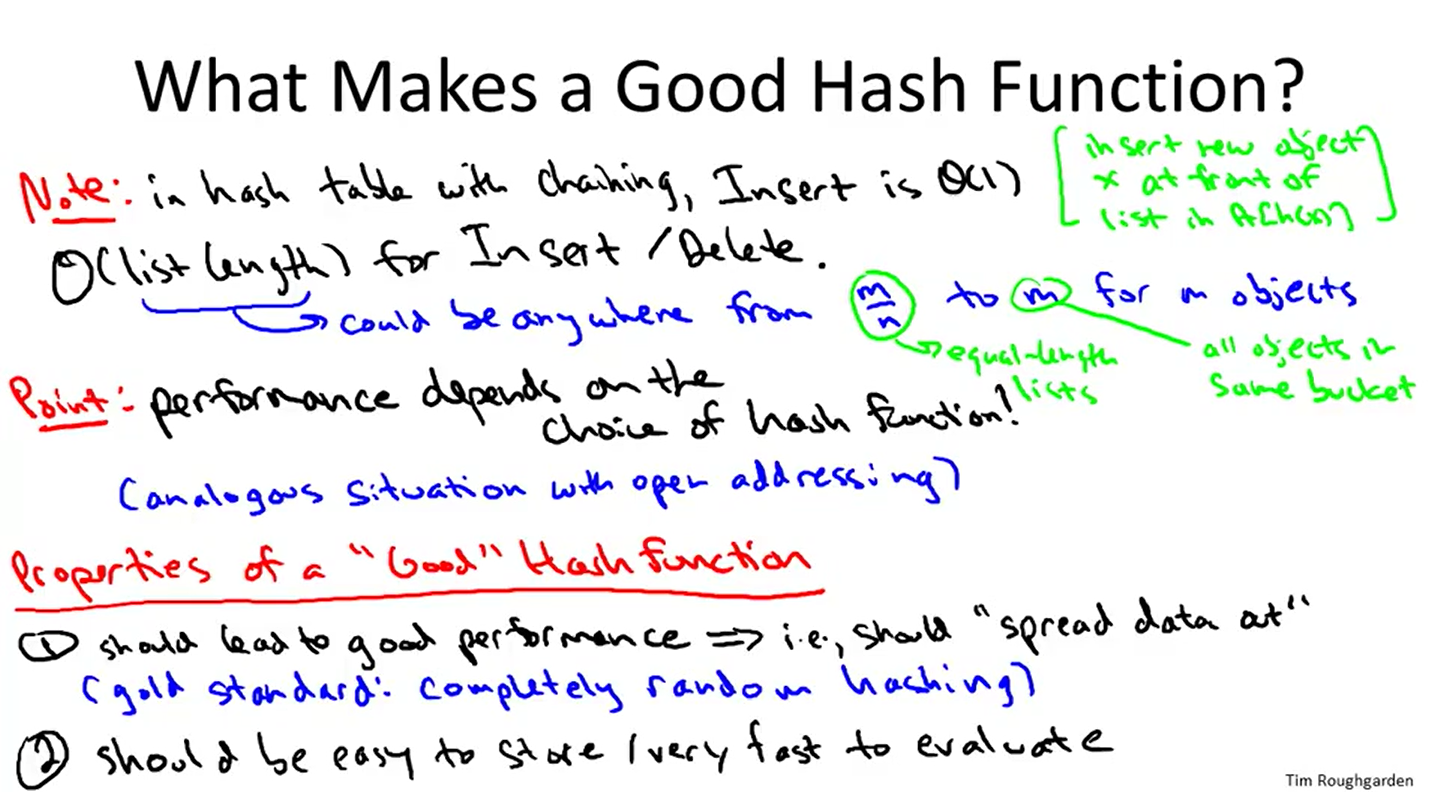 What Makes a Good Hash Function?
Note: in hash table with chaining, Insert is Θ(1)
[insert new object
x at front of
list in A[h(x)]]
Θ(list length) for Insert/Delete.
could be anywhere from m/n to m for m objects
equal-length
lists
all objects in
same bucket
Point: performance depends on the
choice of hash function!
(analogous situation with open addressing)
Properties of a "Good" Hash function
① should lead to good performance => i.e., should "spread data out"
(gold standard: completely random hashing)
② should be easy to store / very fast to evaluate
Tim Roughgarden